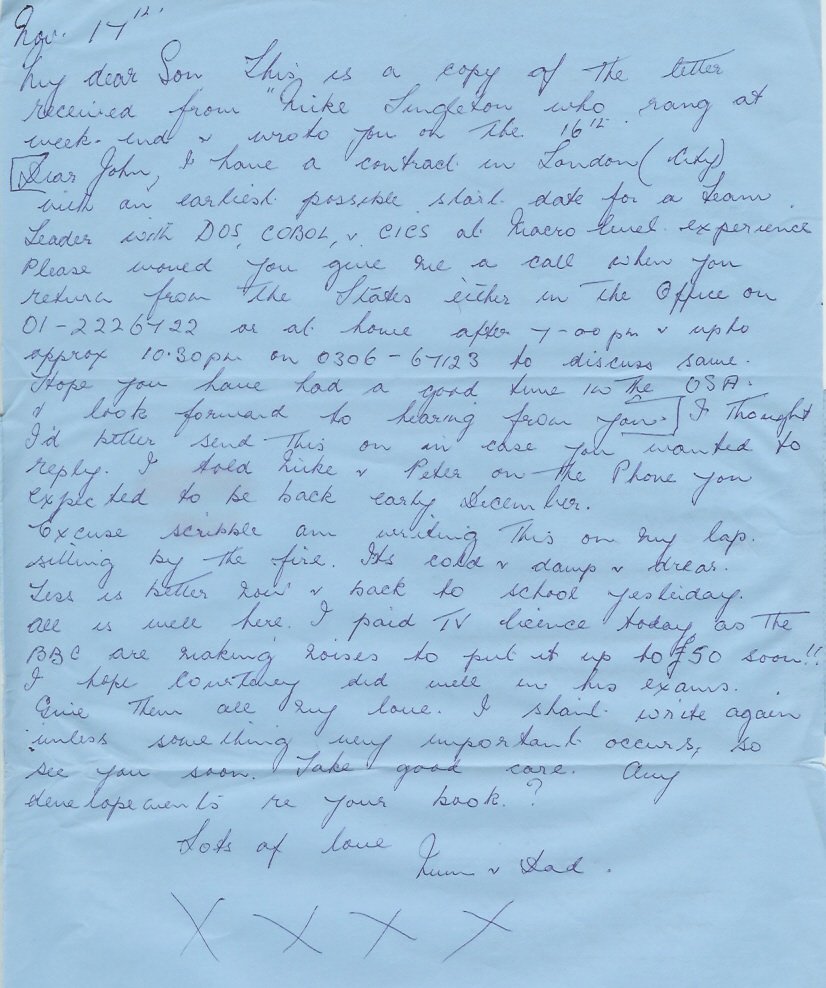 Nov. 17th.
My dear Son This is a copy of the letter
received from "Mike Singleton who rang at
week-end & wrote you on the 16th.
[Dear John, I have a contract in London (City)
with an earliest possible start date for a Team
Leader with DOS, COBOL, & CICS at Macro level experience
Please would you give me a call when you
return from the States either in the Office on
01-2226722 or at home after 7-00pm & upto
approx 10.30pm on 0306-67123 to discuss same.
Hope you have had a good time in the USA.
& look forward to hearing from you.] I thought
I'd better send this on in case you wanted to
reply. I told Mike & Peter on the Phone you
expected to be back early December.
Excuse scribble am writing this on my lap.
sitting by the fire. Its cold & damp & drear.
Less is better now & back to school yesterday.
All is well here. I paid TV licence today as the
BBC are making noises to put it up to £50 soon!!
I hope Courtney did well in his exams.
Give them all my love. I shan't write again
unless something very important occurs, so
see you soon. Take good care. Any
developements re your book.?
Lots of love
Mum & Dad.
X X X X